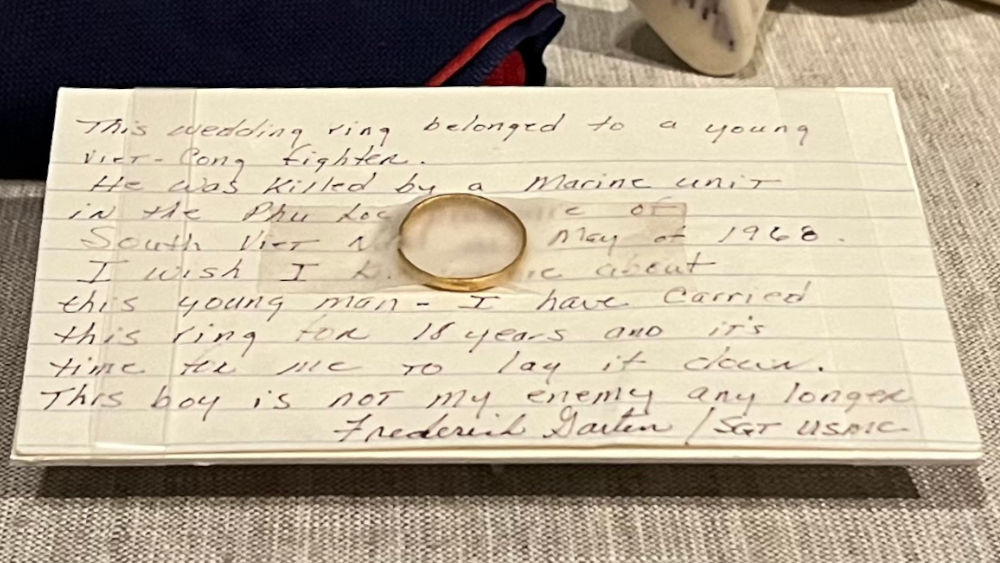 This wedding ring belonged to a young
Viet-Cong fighter.
He was killed by a Marine unit
in the Phu Loc of
South Viet May of 1968.
I wish I about
this young man - I have carried
this ring for 18 years and it's
time for me to lay it down.
This boy is not my enemy any longer
Frederick Garten / SGT USMC